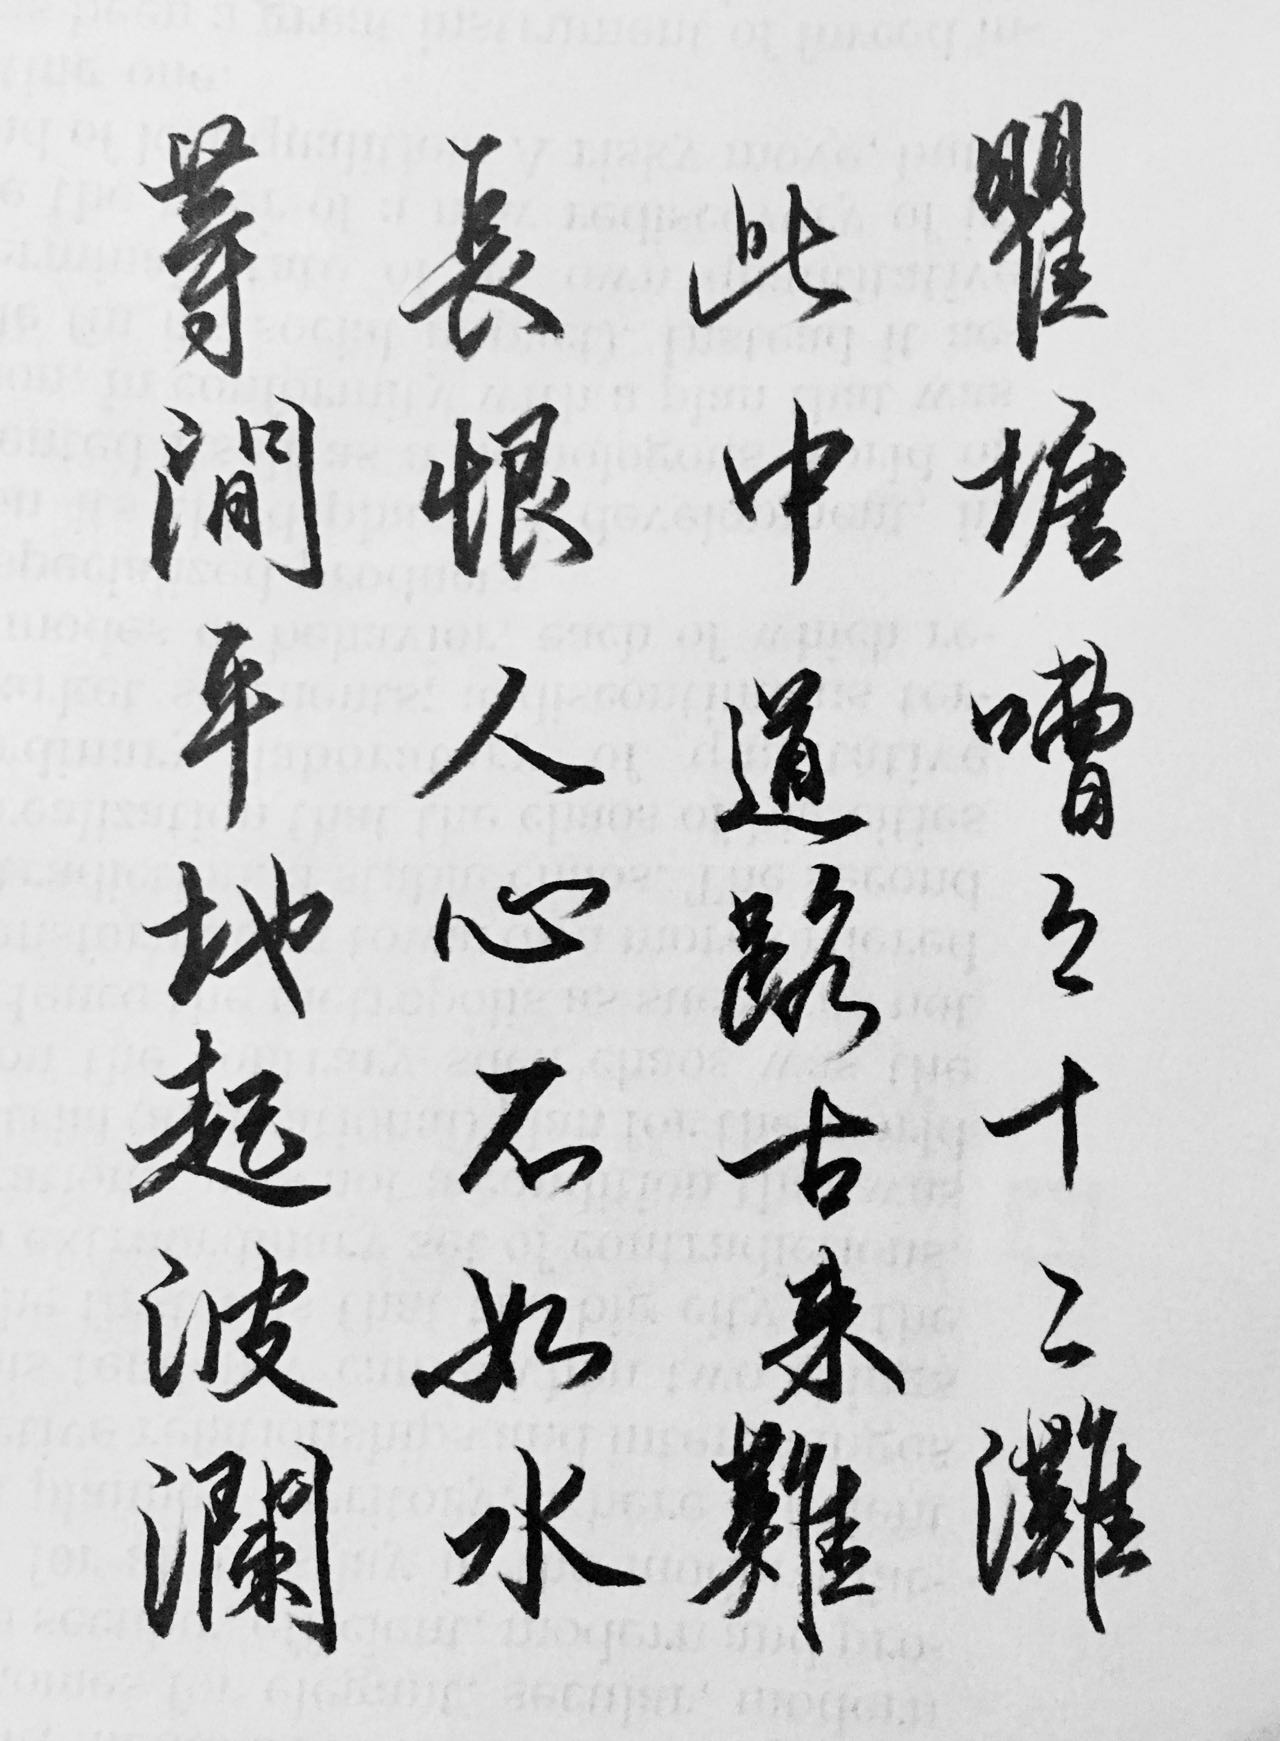 瞿塘嘈之十二灘
此中道路古来難
長恨人心不如水
等閒平地起波瀾